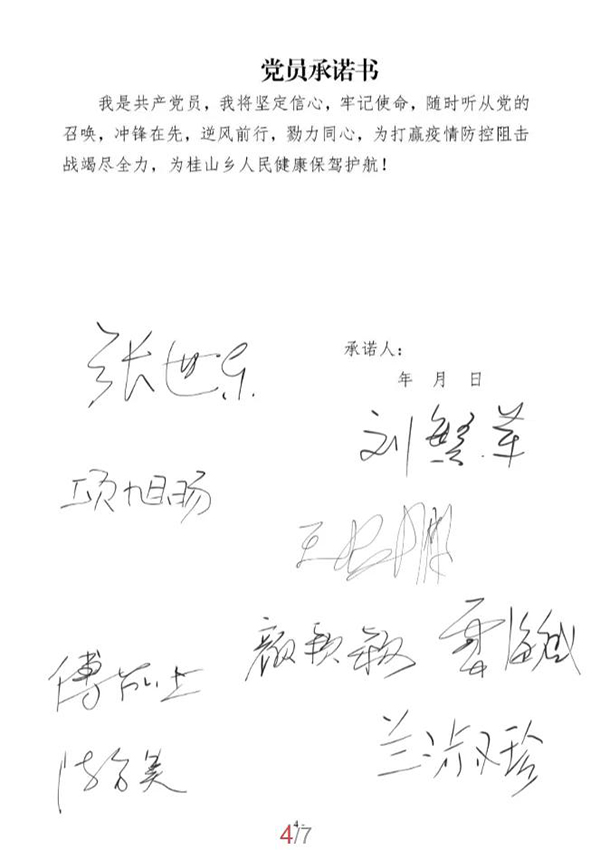 党员承诺书
我是共产党员，我将坚定信心，牢记使命，随时听从党的
召唤，冲锋在先，逆风前行，勠力同心，为打赢疫情防控阻击
战竭尽全力，为桂山乡人民健康保驾护航！
承诺人：
年 月 日
刘繁荣
项旭旸
兰淑珍
4/7